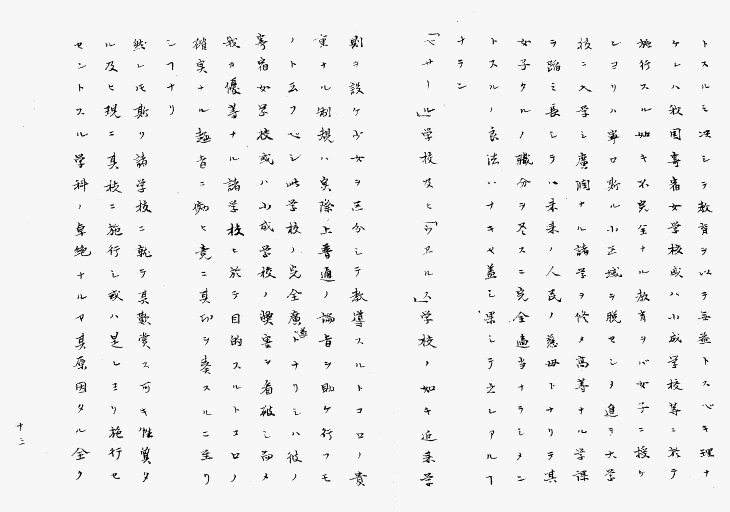 トスルモ決シテ教育ヲ以テ無益トスベキ理ナ
ケレハ我国寄宿女学校或ハ小成学校等ニ於テ
施行スル如キ不完全ナル教育ヲバ女子ニ授ケ
ンヨリハ寧ロ斯ル小区域ヲ脱セシメ進テ大学
校ニ入学シ廣濶ナル諸学ヲ修メ高等ナル学課
ヲ踏ミ長シテハ未来ノ人民ノ慈母トナリテ其
女子タルノ職分ヲ尽スニ完全適当ナラシメン
トスルノ良法ハナキヤ蓋シ果シテ之レアルコ
ナラン
「ベサール」学校及ヒ「ウアルス」学校ノ如キ近来学
則ヲ設ケ男女ヲ区分シテ教導スルトコロノ貴
重ナル制規ハ実際上普通ノ論旨ヲ助ケ行フモ
ノト云フベシ此学校ノ完全廣ト ナリシハ彼ノ
寄宿女学校或ハ小成学校ノ弊害ヲ看破シ而メ
我カ優等ナル諸学校ヒ於テ目的スルトコロノ
確実ナル趣旨ニ効ヒ竟ニ其功ヲ奏スルニ至リ
シコナリ
然レ圧斯ク諸学校ニ就テ其歎賞ス可キ性質タ
ル及ヒ現ニ其校ニ施行シ或ハ是レヨリ施行セ
セントスル学科ノ卓絶ナルヤ其原因タル全ク
十二